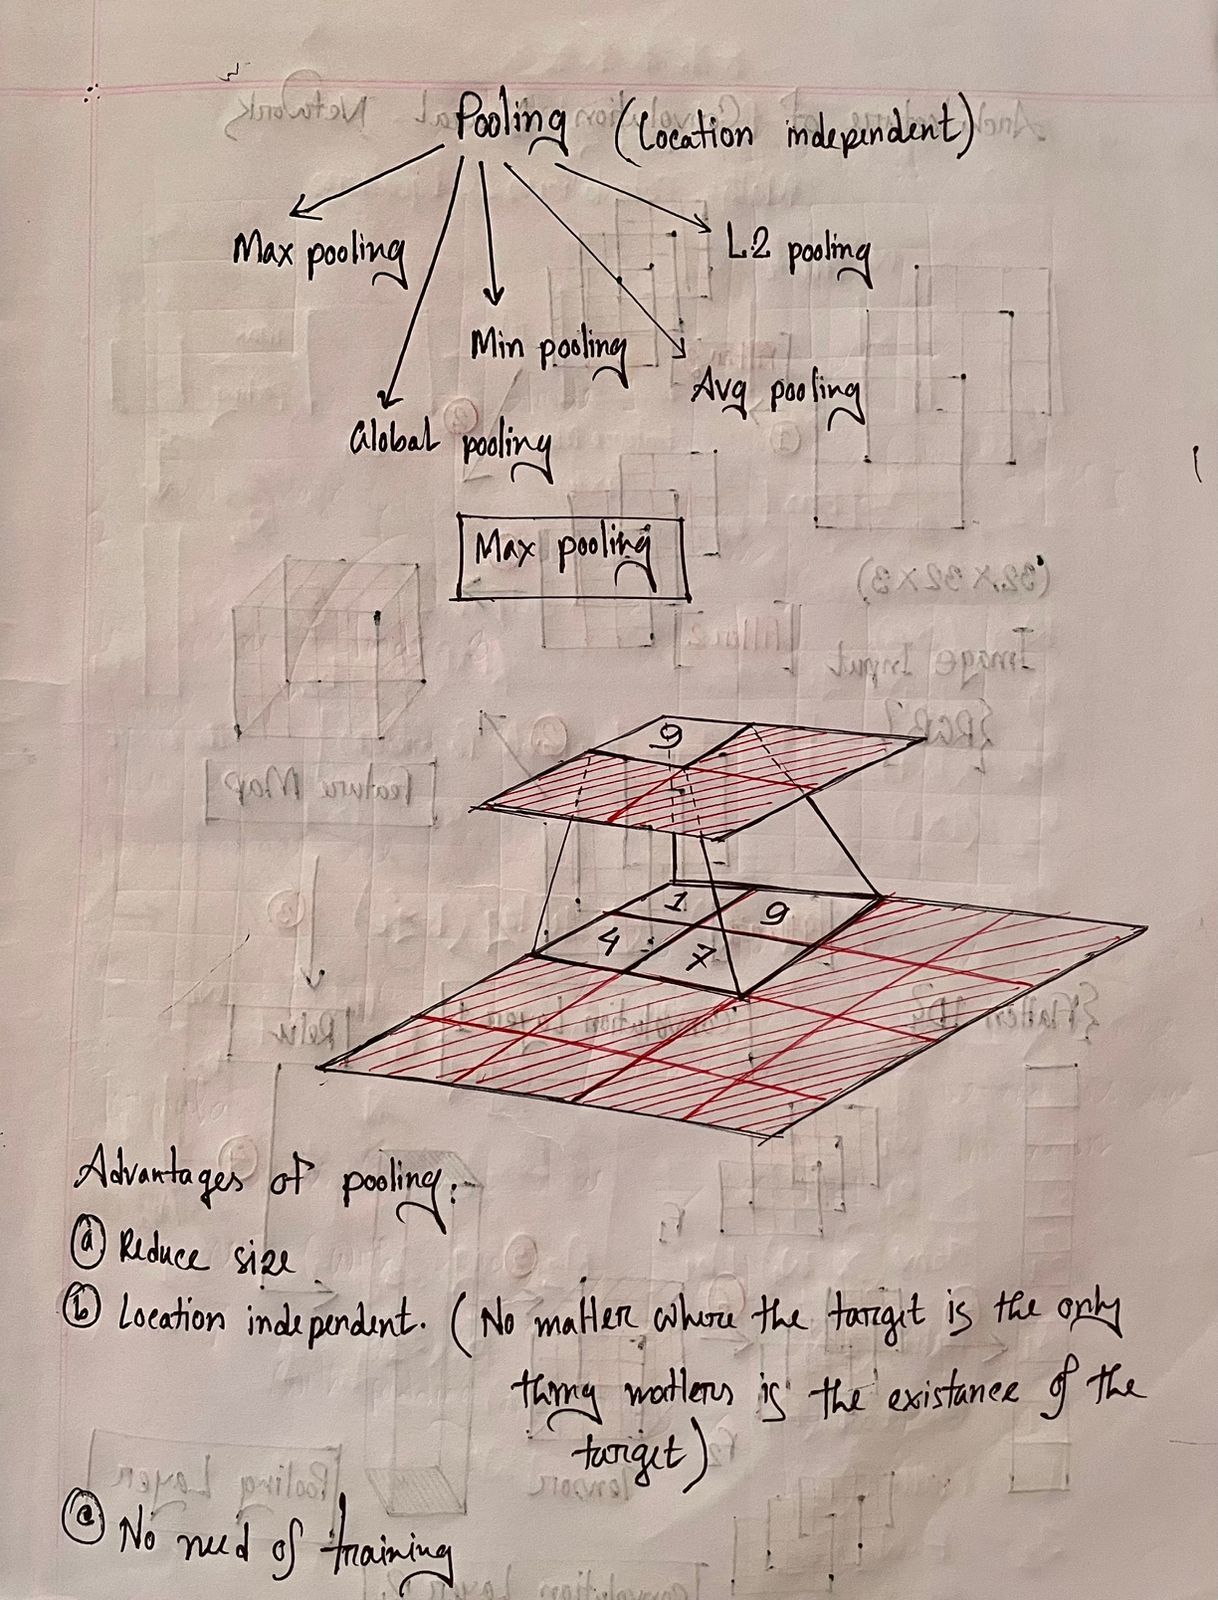 Pooling (Location independent)
Max pooling
L2 pooling
Min pooling
Avg pooling
Global pooling
Max pooling
9
1 9
4 7
Advantages of pooling:
(a) Reduce size
(b) Location independent. (No matter where the target is the only
thing matters is the existance of the
target)
(c) No need of training